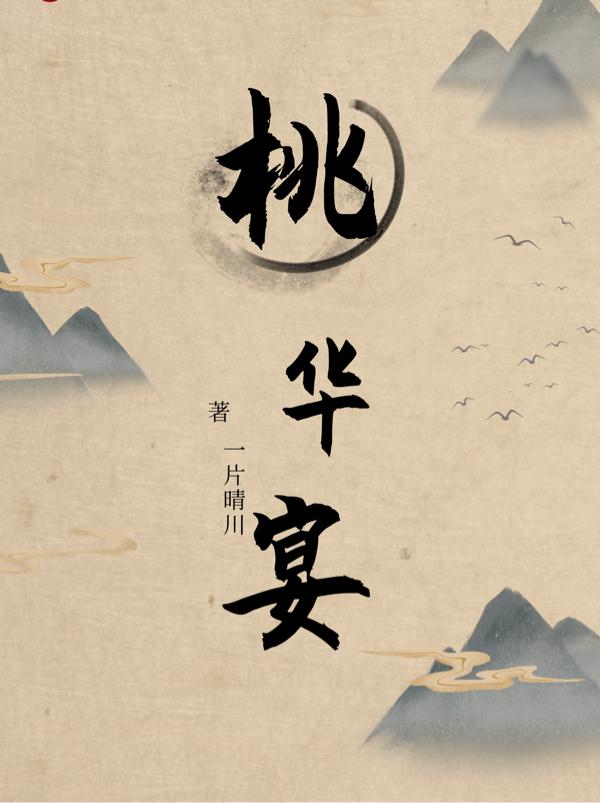 桃华宴
著
一片晴川